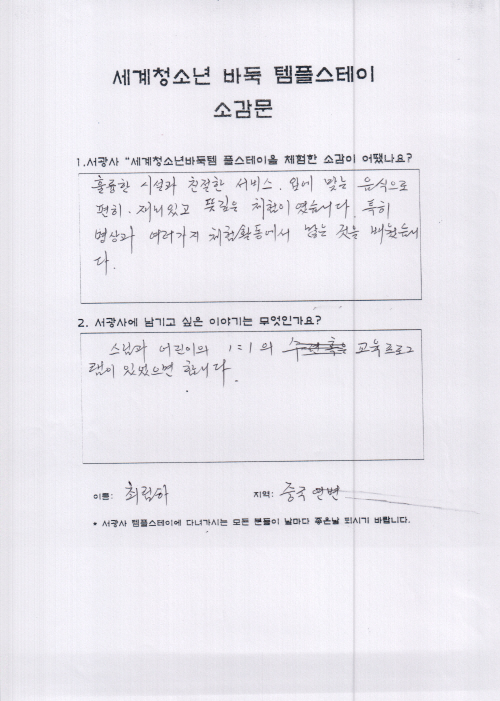 세계청소년 바둑 템플스테이
소감문
1.서광사 "세계청소년바둑템 플스테이을 체험한 소감이 어땠나요?
훌륭한 시설과 친절한 서비스. 입에 맞는 음식으로
편히. 재미있고 뜻깊은 체험이였습니다. 특히
명상과 여러가지 체험활동에서 많은 것을 배웠습니
다.
2. 서광사에 남기고 싶은 이야기는 무엇인가요?
스님과 어린이의 1:1 의 교육프로그
램이 있었으면 합니다.
이름: 최림하 지역: 중국 연변
* 서광사 템플스테이에 다녀가시는 모든 분들이 날마다 좋은날 되시기 바랍니다.